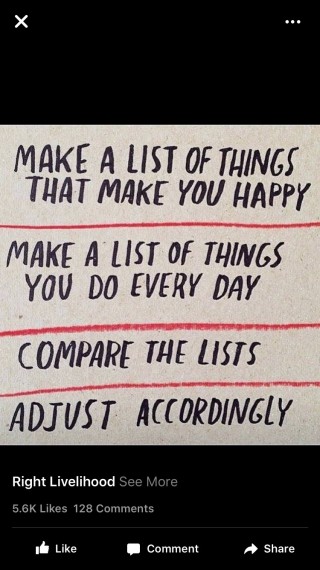 MAKE A LIST OF THINGS
THAT MAKE YOU HAPPY
MAKE A LIST OF THINGS
YOU DO EVERY DAY
COMPARE THE LISTS
ADJUST ACCORDINGLY
Right Livelihood See More
5.6K Likes 128 Comments
Like Comment Share